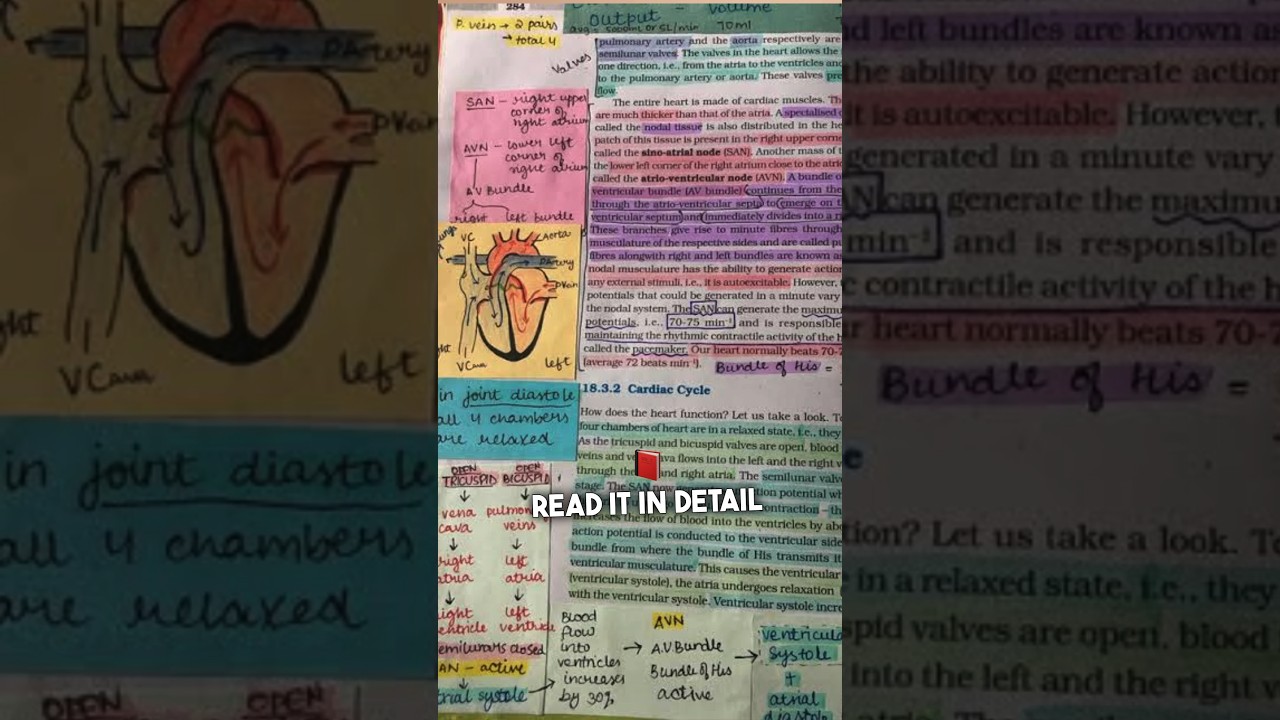 284
P. vein → 2 pairs
→ total 4
output - volume
70ml
Valves
pulmonary artery and the aorta respectively are
semilunar valves. The valves in the heart allows the
one direction, i.e., from the atria to the ventricles and
to the pulmonary artery or aorta. These valves pre
flow.
SAN - right upper
corner of
right atrium
AVN - lower left
corner of
right atrium
AV Bundle
right left bundle
The entire heart is made of cardiac muscles. Th
are much thicker than that of the atria. A specialised c
called the nodal tissue is also distributed in the he
patch of this tissue is present in the right upper corne
called the sino-atrial node (SAN). Another mass of t
the lower left corner of the right atrium close to the atrio
called the atrio-ventricular node (AVN). A bundle o
ventricular bundle (AV bundle) continues from the
through the atrio-ventricular septa to emerge on t
ventricular septum and immediately divides into a ri
These branches give rise to minute fibres through
musculature of the respective sides and are called pu
fibres alongwith right and left bundles are known a
nodal musculature has the ability to generate action
any external stimuli, i.e., it is autoexcitable. However,
potentials that could be generated in a minute vary
the nodal system. The SAN can generate the maximu
potentials, i.e., 70-75 min⁻¹ and is responsible
maintaining the rhythmic contractile activity of the h
called the pacemaker. Our heart normally beats 70-7
(average 72 beats min⁻¹).
Bundle of His =
VC
Aorta
PArtery
PVein
VCava
left
in joint diastole
all 4 chambers
are relaxed
18.3.2 Cardiac Cycle
How does the heart function? Let us take a look. To
four chambers of heart are in a relaxed state, i.e., they
As the tricuspid and bicuspid valves are open, blood
veins and ve ava flows into the left and the right v
through the and right atria. The semilunar valv
stage. The SAN now tion potential wh
ontraction – th
increases the flow of blood into the ventricles by abo
action potential is conducted to the ventricular side
bundle from where the bundle of His transmits it
ventricular musculature. This causes the ventricular
(ventricular systole), the atria undergoes relaxation
with the ventricular systole. Ventricular systole incre
READ IT IN DETAIL
OPEN OPEN
TRICUSPID BICUSPID
vena pulmon
cava veins
right left
atria atria
right left
entricle ventricle
semilunars closed
AN - active
trial systole
Blood
flow
into
ventricles
increases
by 30%
AVN
→ A.V Bundle
Bundle of His
active
ventricula
systole
+
atrial
diastole